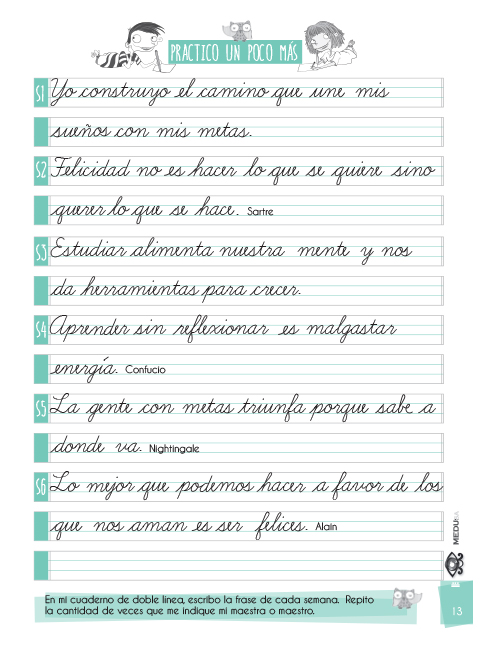 PRACTICO UN POCO MÁS
S1 Yo construyo el camino que une mis
sueños con mis metas.
S2 Felicidad no es hacer lo que se quiere sino
querer lo que se hace. Sartre
S3 Estudiar alimenta nuestra mente y nos
da herramientas para crecer.
S4 Aprender sin reflexionar es malgastar
energía. Confucio
S5 La gente con metas triunfa porque sabe a
donde va. Nightingale
S6 Lo mejor que podemos hacer a favor de los
que nos aman es ser felices. Alain
MEDUNA
En mi cuaderno de doble línea, escribo la frase de cada semana. Repito
la cantidad de veces que me indique mi maestra o maestro.
13